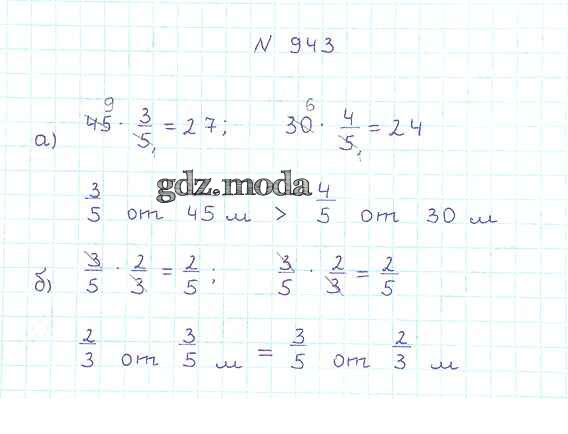 N 943
а) 45 9 · 3/5 1 = 27; 30 6 · 4/5 1 = 24
gdz.moda
3/5 от 45 м > 4/5 от 30 м
б) 3/5 · 2/3 = 2/5; 3/5 · 2/3 = 2/5
2/3 от 3/5 м = 3/5 от 2/3 м